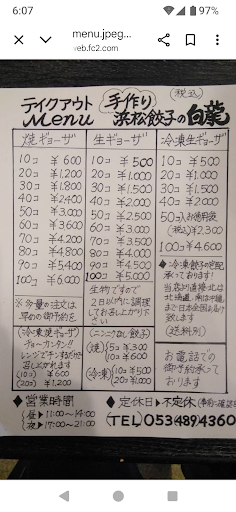 6:07
97%
menu.jpeg...
eb.fc2.com
テイクアウト
Menu
手作り
(税込)
浜松餃子の白龍
焼ギョーザ
10コ ¥600
20コ ¥1.200
30コ ¥1.800
40コ ¥2400
50コ ¥3.000
60コ ¥3.600
70コ ¥4.200
80コ ¥4.800
90コ ¥5.400
100コ ¥6.000
※大量の注文は
早めの御予約を
(冷凍焼ギョーザ)
チョーカンタン!!
レンジでチンするだけで
召し上がれます
(10コ) ¥600
(20コ) ¥1.200
生ギョーザ
10コ ¥500
20コ ¥1.000
30コ ¥1.500
40コ ¥2.000
50コ ¥2.500
60コ ¥3.000
70コ ¥3.500
80コ ¥4.000
90コ ¥4.500
100コ ¥5.000
生物ですので
2日以内に調理
してお召し上がり下
さい
(ニンニクなし餃子)
(焼) 5コ ¥300
10コ ¥600
(冷凍) 10コ ¥500
20コ ¥1.000
冷凍生ギョーザ
10コ ¥500
20コ ¥1.000
30コ ¥1.500
40コ ¥2.000
50コ入お徳用袋
(税込) ¥2.300
100コ ¥4.600
◆冷凍餃子の宅配
承っております!
当店より直接、北は
北海道、南は沖縄
まで日本全国お届け
致します
(送料別)
お電話での
御予約承って
おります
◆営業時間
昼▶11:00〜14:00
夜▶17:00〜21:00
◆定休日▶不定休
(TEL) 053(489)4360